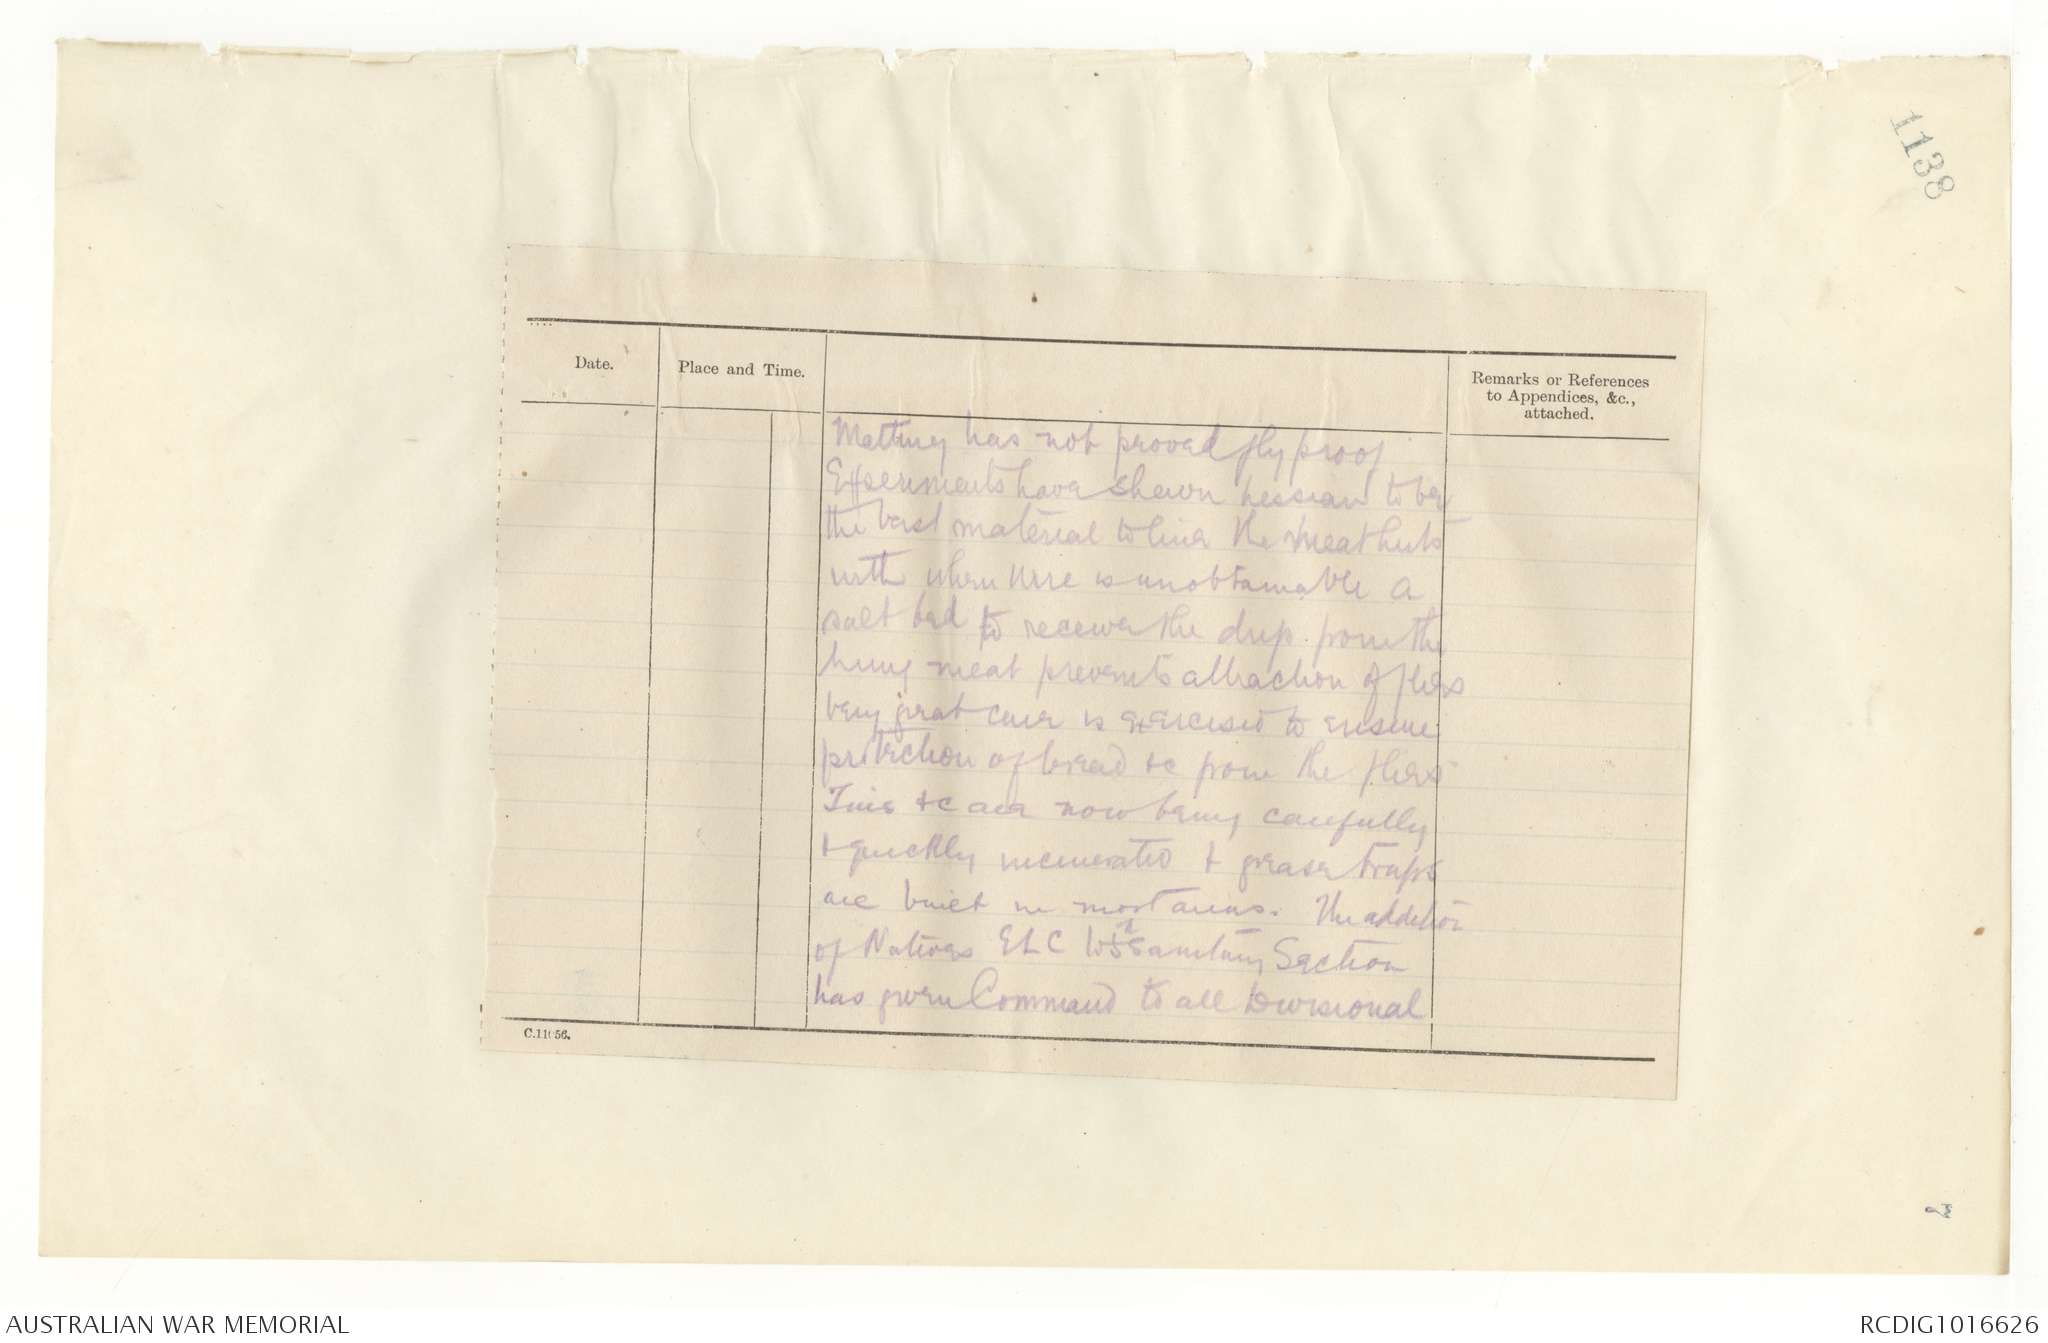 1138
Date.
Place and Time.
Remarks or References
to Appendices, &c.,
attached.
Matting has not proved fly proof
Experiments have shewn hessian to be
the best material to line the meat huts
with when wire is unobtainable A
salt bed to receive the drip from the
hung meat prevents attraction of flies
very great care is exercised to ensure
protection of bread &c from the flies
Tins &c are now being carefully
& quickly incinerated & grease traps
are built in most areas. The addition
of Natives ELC to Sanitary Section
has given Command to all Divisional
C.11056.
AUSTRALIAN WAR MEMORIAL
RCDIG1016626